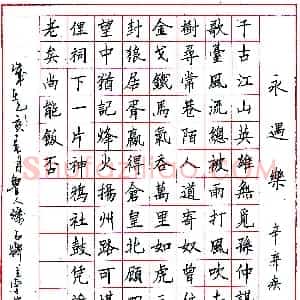 永遇樂 辛弃疾
千古江山英雄無覓孫仲謀
歌臺風流總被雨打風吹去
樹尋常巷陌人道寄奴曾
金戈鐵馬氣吞萬里如虎
封狼居胥贏得倉皇北顧
望中猶記烽火揚州路可堪
狸祠下一片神鴉社鼓憑
老矣尚能飯否